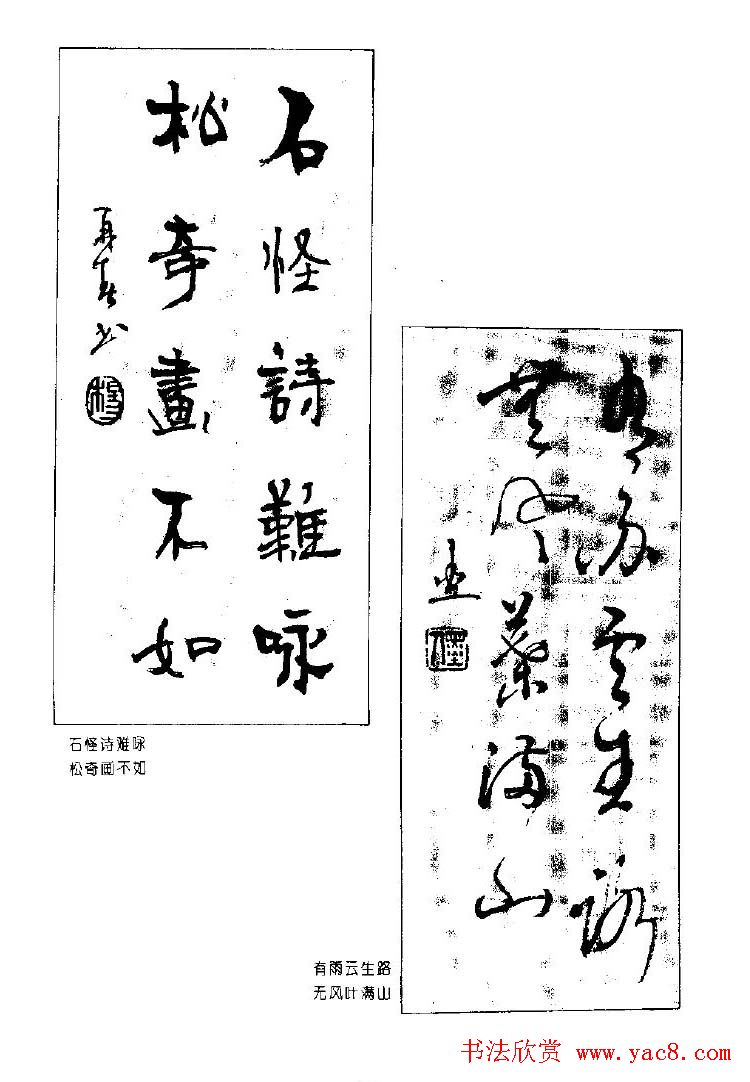 石怪詩難咏
松奇畫不如
石怪诗难咏
松奇画不如
有雨云生路
無風葉滿山
有雨云生路
无风叶满山
书法欣赏 www.yac8.com